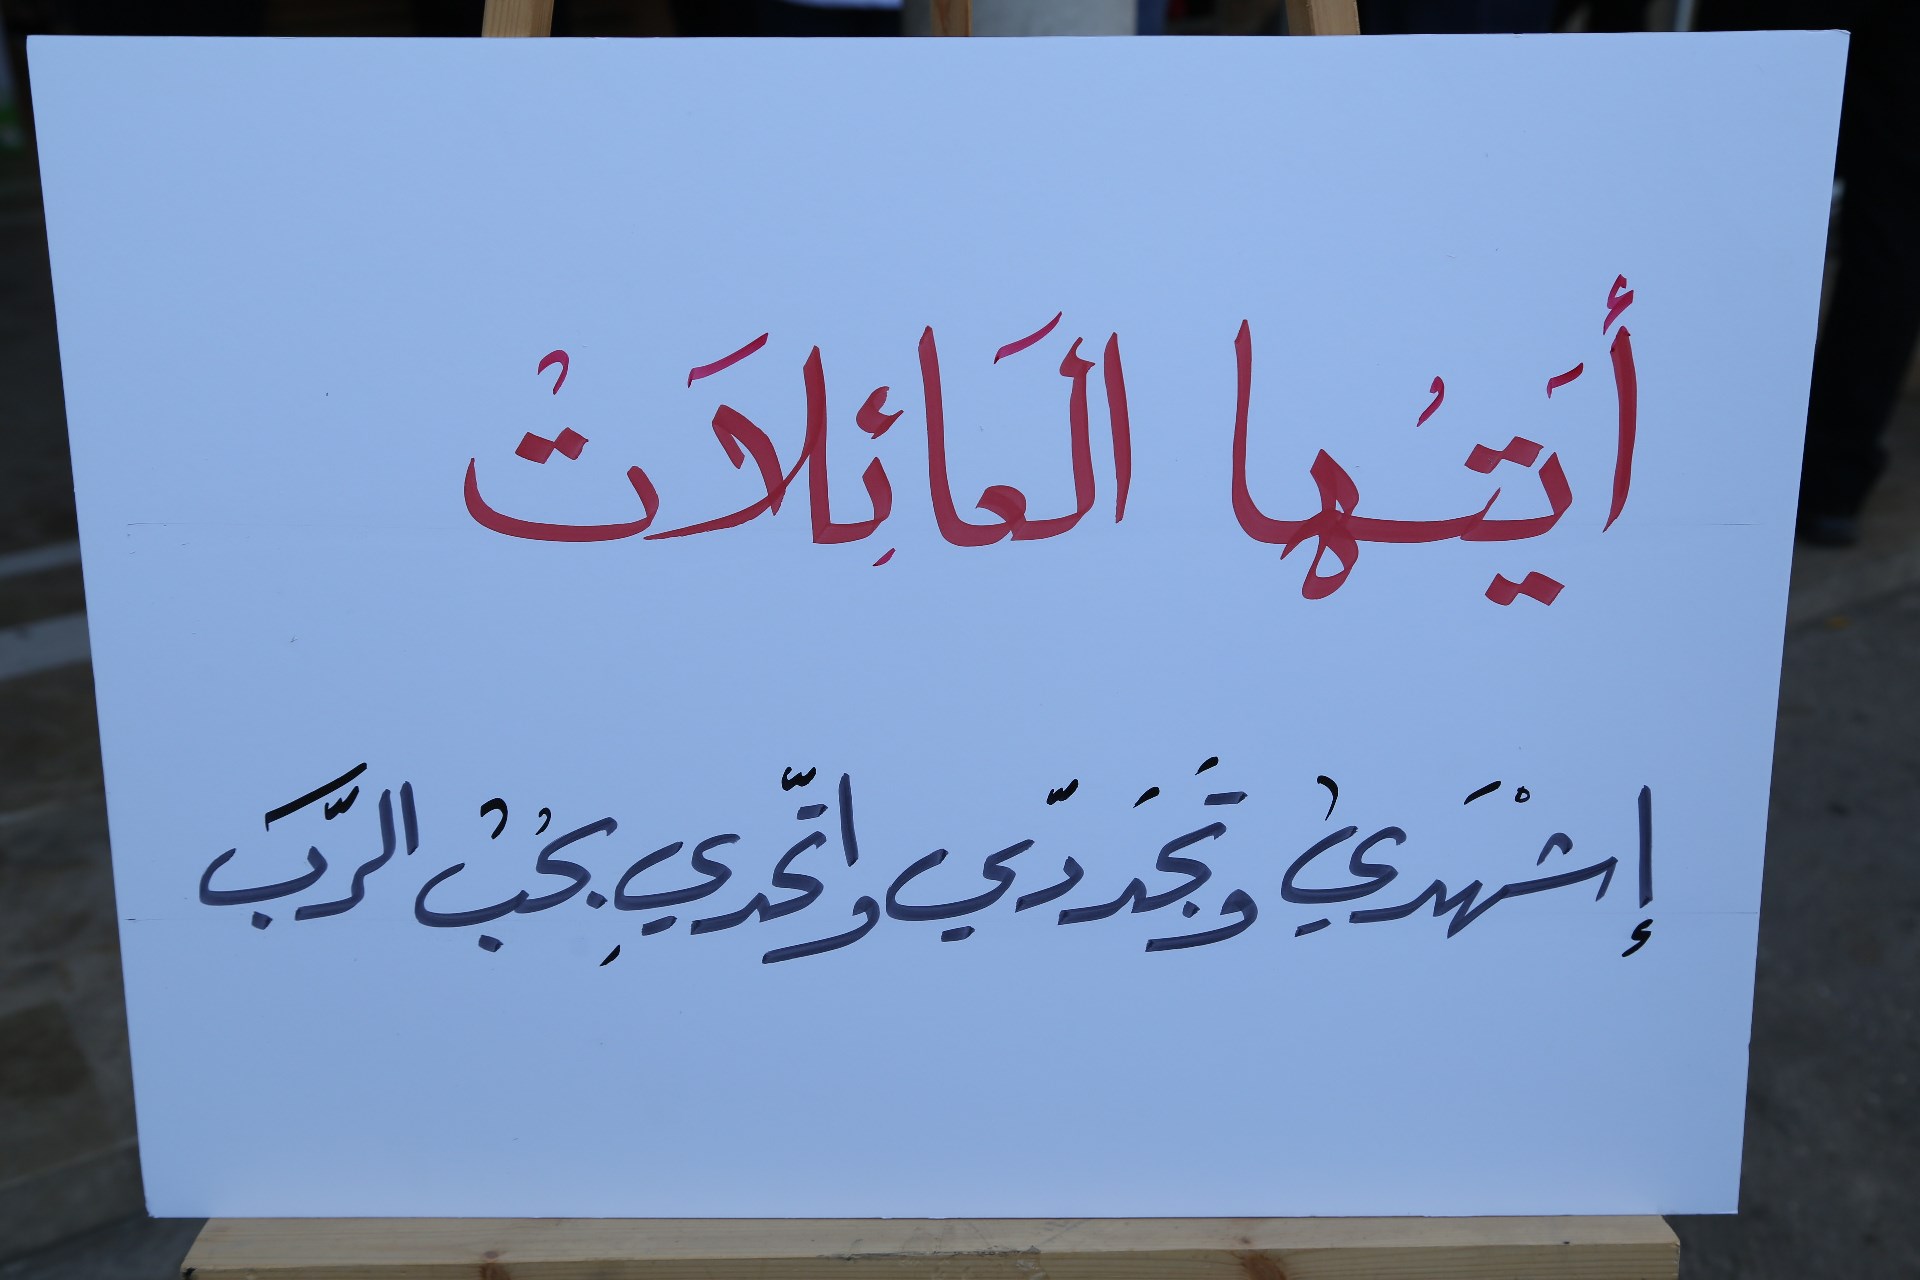 أَيتُها الَعائِلاَتُ
إشْهَدِيُ وتَجُدَدّي واتّحَدي بِحُبُ الرَّب